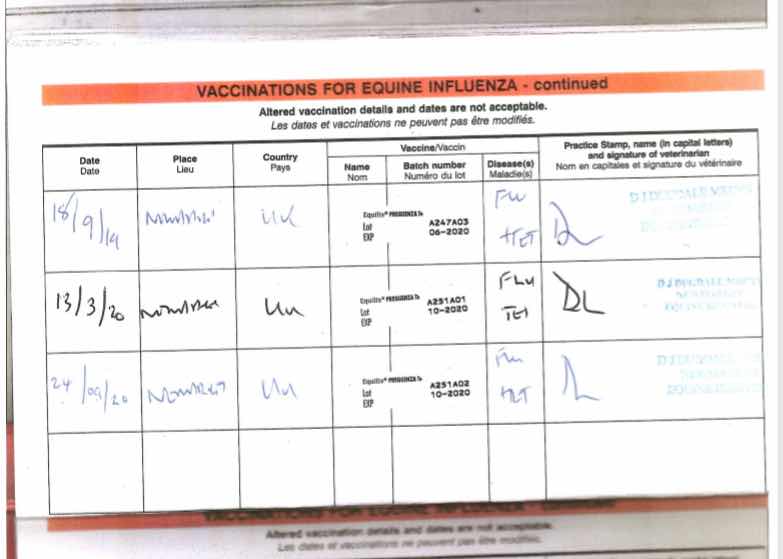 VACCINATIONS FOR EQUINE INFLUENZA - continued
Altered vaccination details and dates are not acceptable.
Les dates et vaccinations ne peuvent pas être modifiés.
Date
Date
Place
Lieu
Country
Pays
Vaccine/Vaccin
Name
Nom
Batch number
Numéro du lot
Disease(s)
Maladie(s)
Practice Stamp, name (in capital letters)
and signature of veterinarian
Nom en capitales et signature du vétérinaire
18/9/19
UK
Equilis® PREQUENZA Te
Lot A247A03
EXP 06-2020
Flu
TET
D J DUGDALE MRCVS
13/3/20
UK
Equilis® PREQUENZA Te
Lot A251A01
EXP 10-2020
FLU
TET
D J DUGDALE MRCVS
24/09/20
UK
Equilis® PREQUENZA Te
Lot A251A02
EXP 10-2020
Flu
TET
D J DUGDALE
VACCINATIONS FOR EQUINE INFLUENZA - continued
Altered vaccination details and dates are not acceptable.
Les dates et vaccinations ne peuvent pas être modifiés.